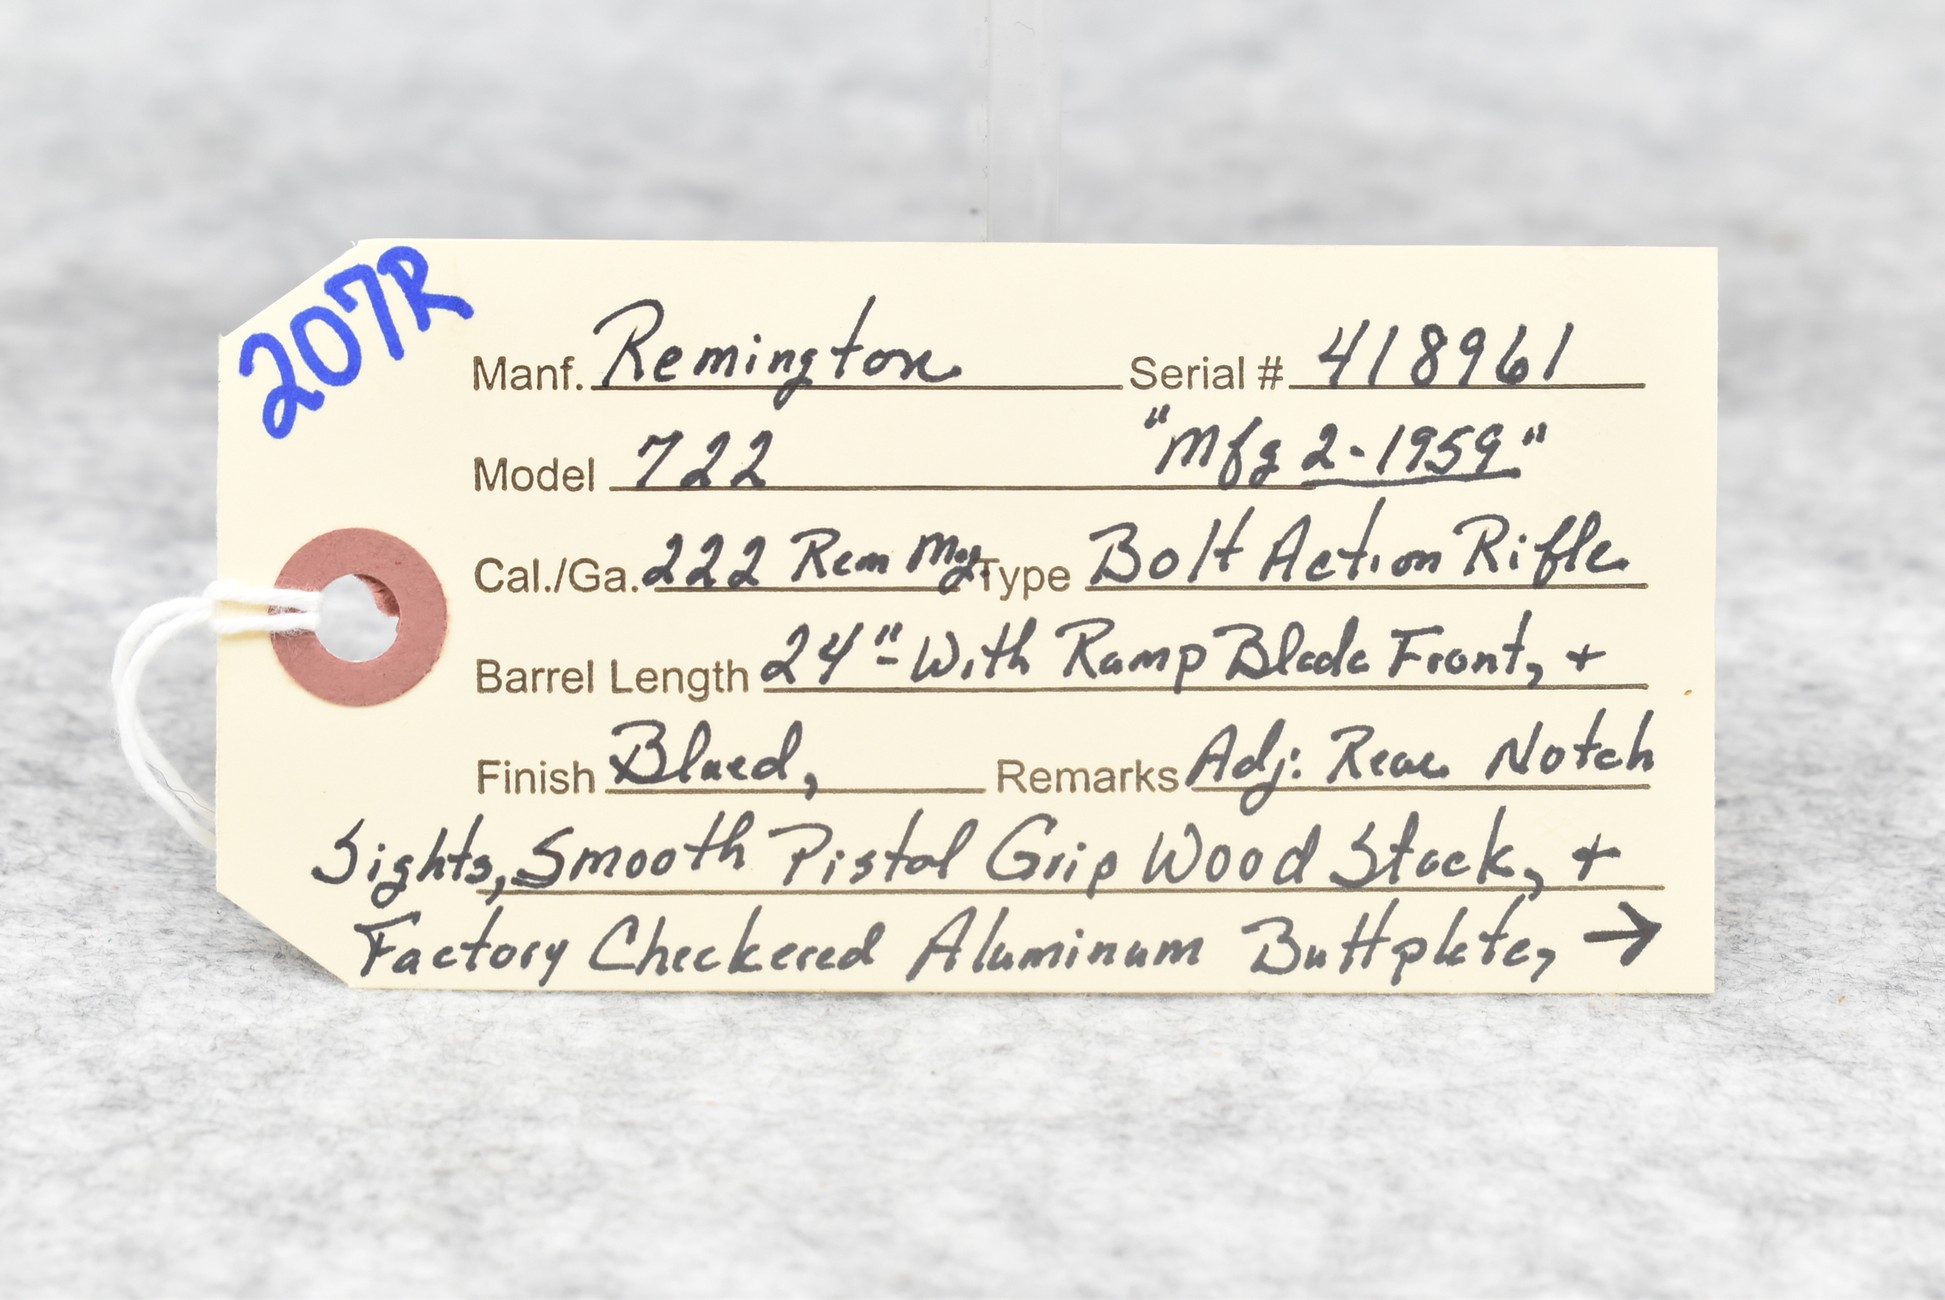 207R
Manf. Remington Serial # 418961
Model 722 "Mfg 2-1959"
Cal./Ga. 222 Rem Mag. Type Bolt Action Rifle
Barrel Length 24"- With Ramp Blade Front, +
Finish Blued, Remarks Adj: Rear Notch
Sights, Smooth Pistol Grip Wood Stock, +
Factory Checkered Aluminum Buttplate, →